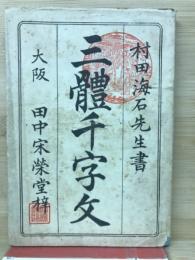 村田海石先生書
三體千字文
大阪 田中宋榮堂梓